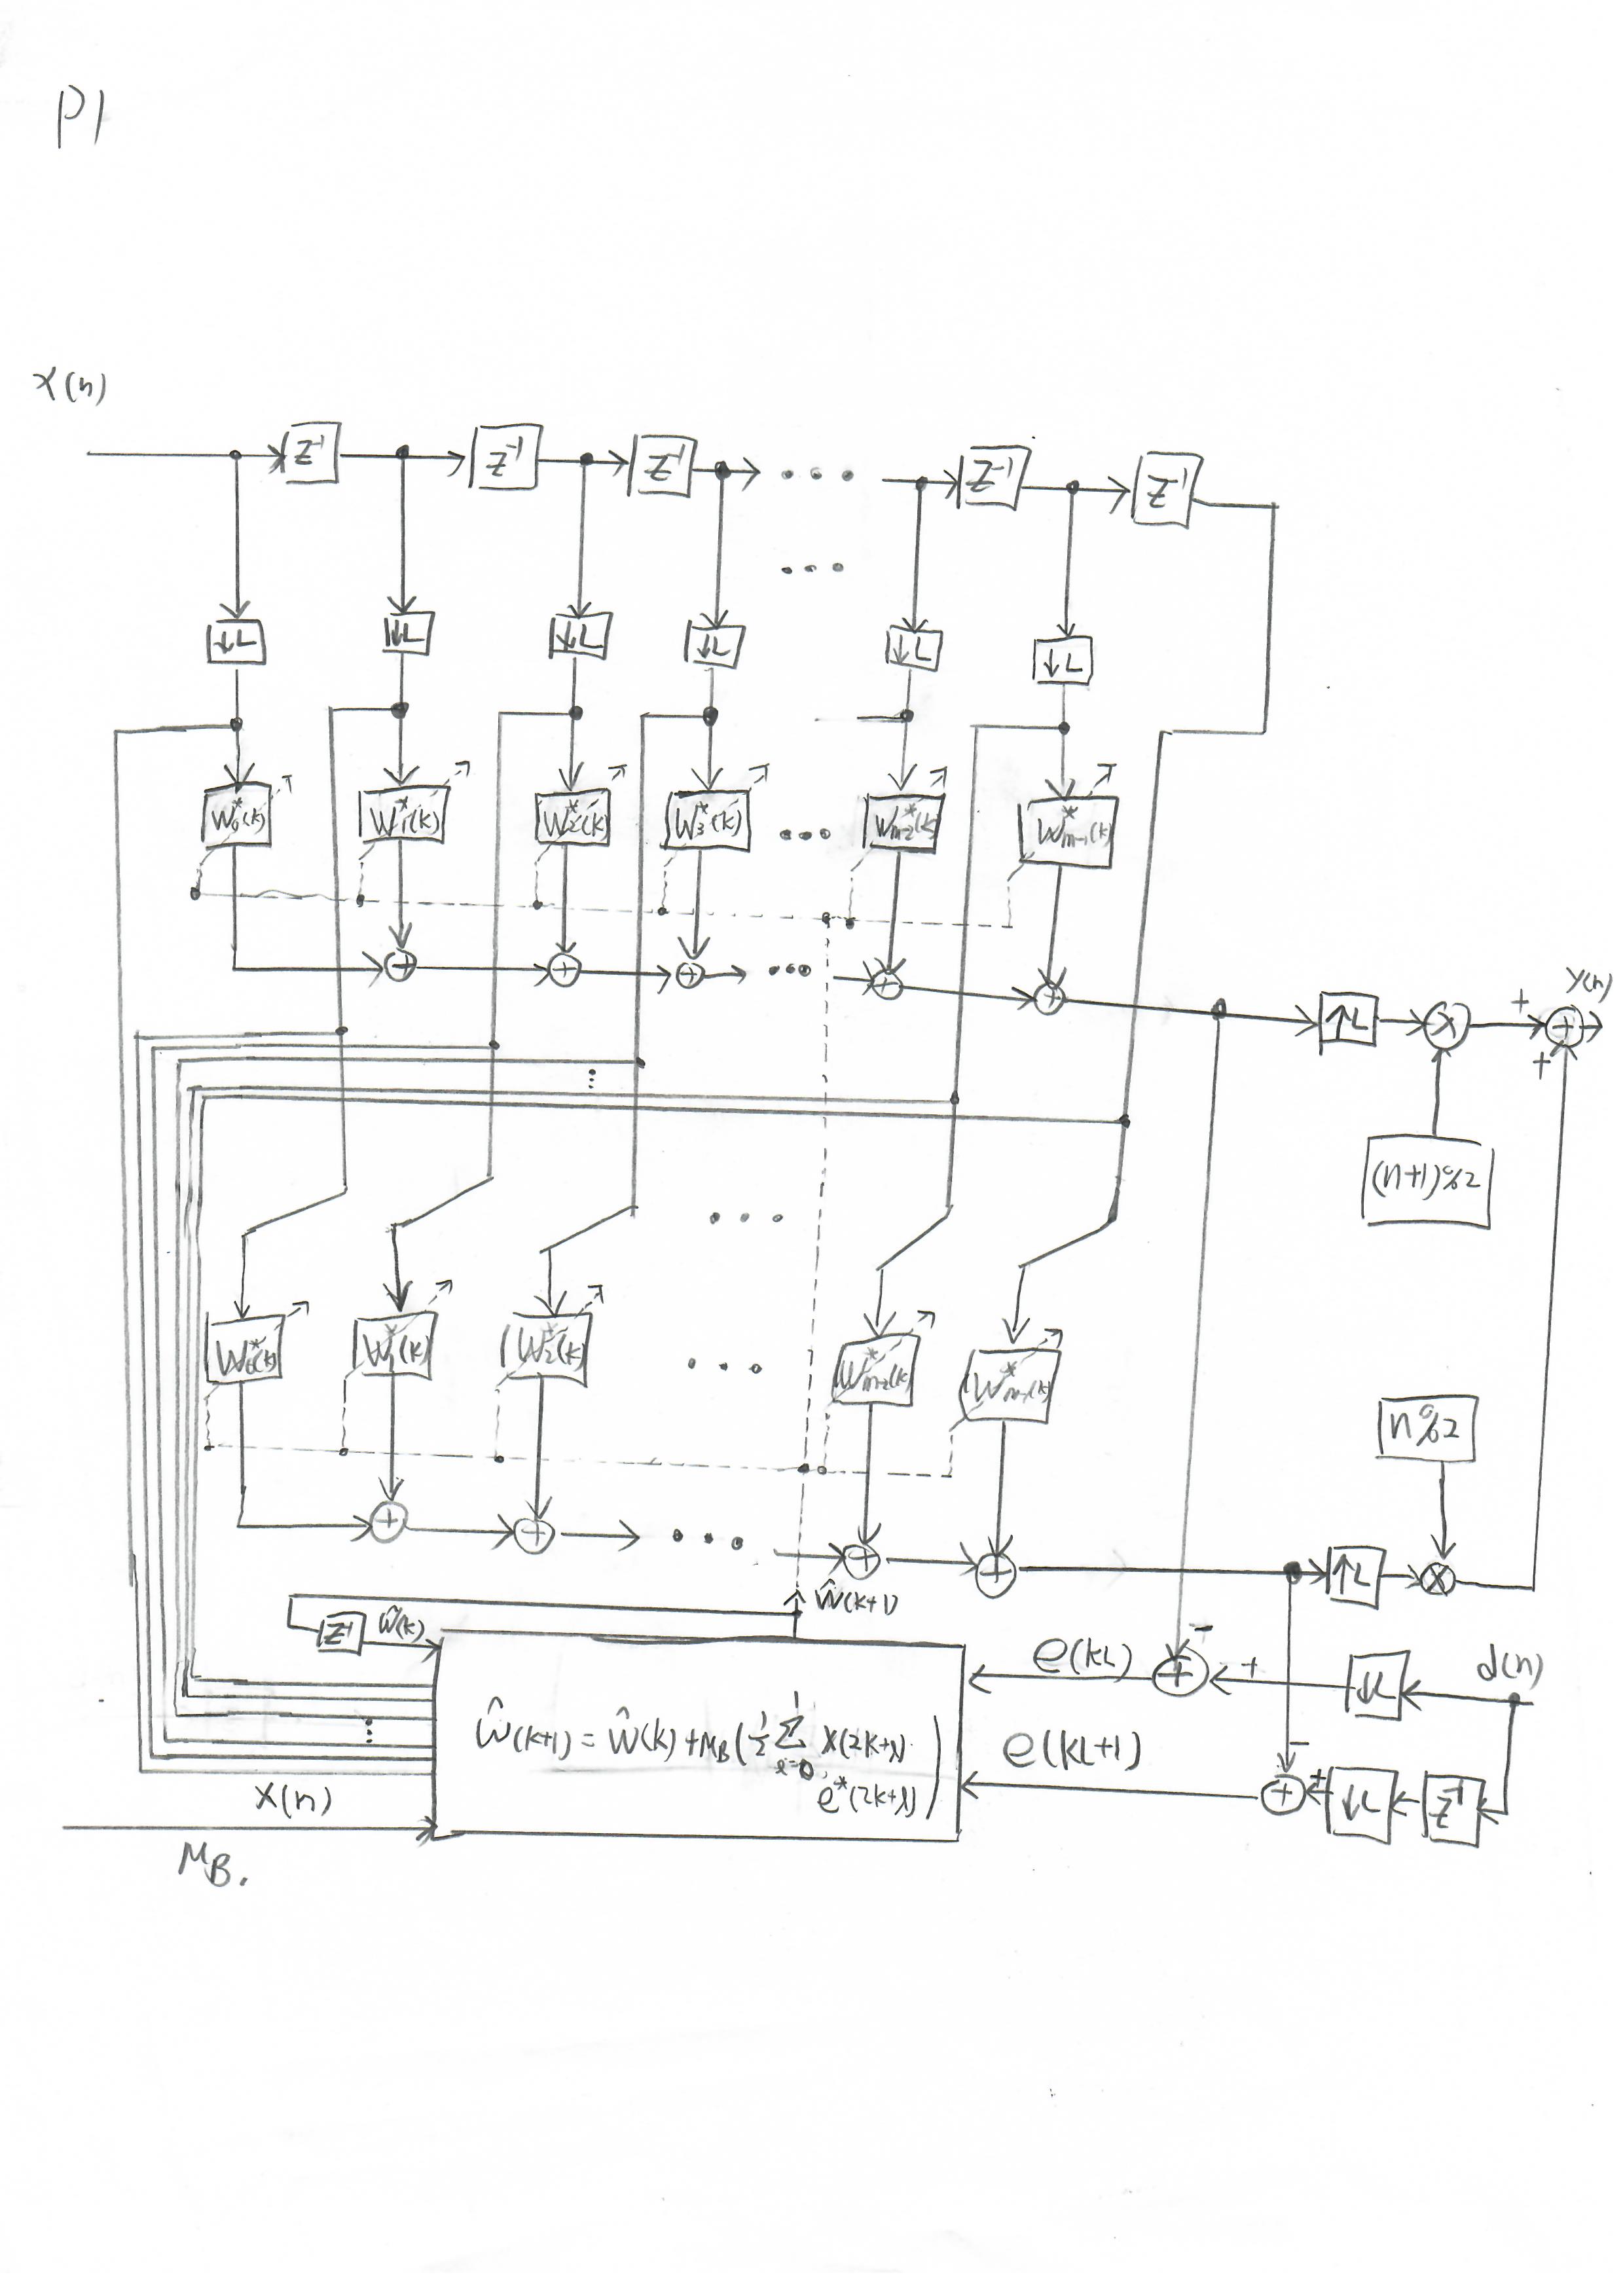 P1
x(n)
z⁻¹ z⁻¹ z⁻¹ ... z⁻¹ z⁻¹
...
↓L ↓L ↓L ↓L ↓L ↓L
W₀*(k) W₁*(k) W₂*(k) W₃*(k) ... Wₘ₋₂*(k) Wₘ₋₁*(k)
+ + + ... + +
↑L × + + y(n)
+
(n+1)%2
...
W₀*(k) W₁*(k) W₂*(k) ... Wₘ₋₂*(k) Wₘ₋₁*(k)
n%2
+ + ... + +
↑L ×
ŵ(k+1)
z⁻¹ ŵ(k)
e(kL) + - + ↓L d(n)
ŵ(k+1) = ŵ(k) + μB(½ Σ x(2k+l)·
l=0
1
e*(2k+l))
e(kL+1) + - + ↓L z⁻¹
x(n)
μB.